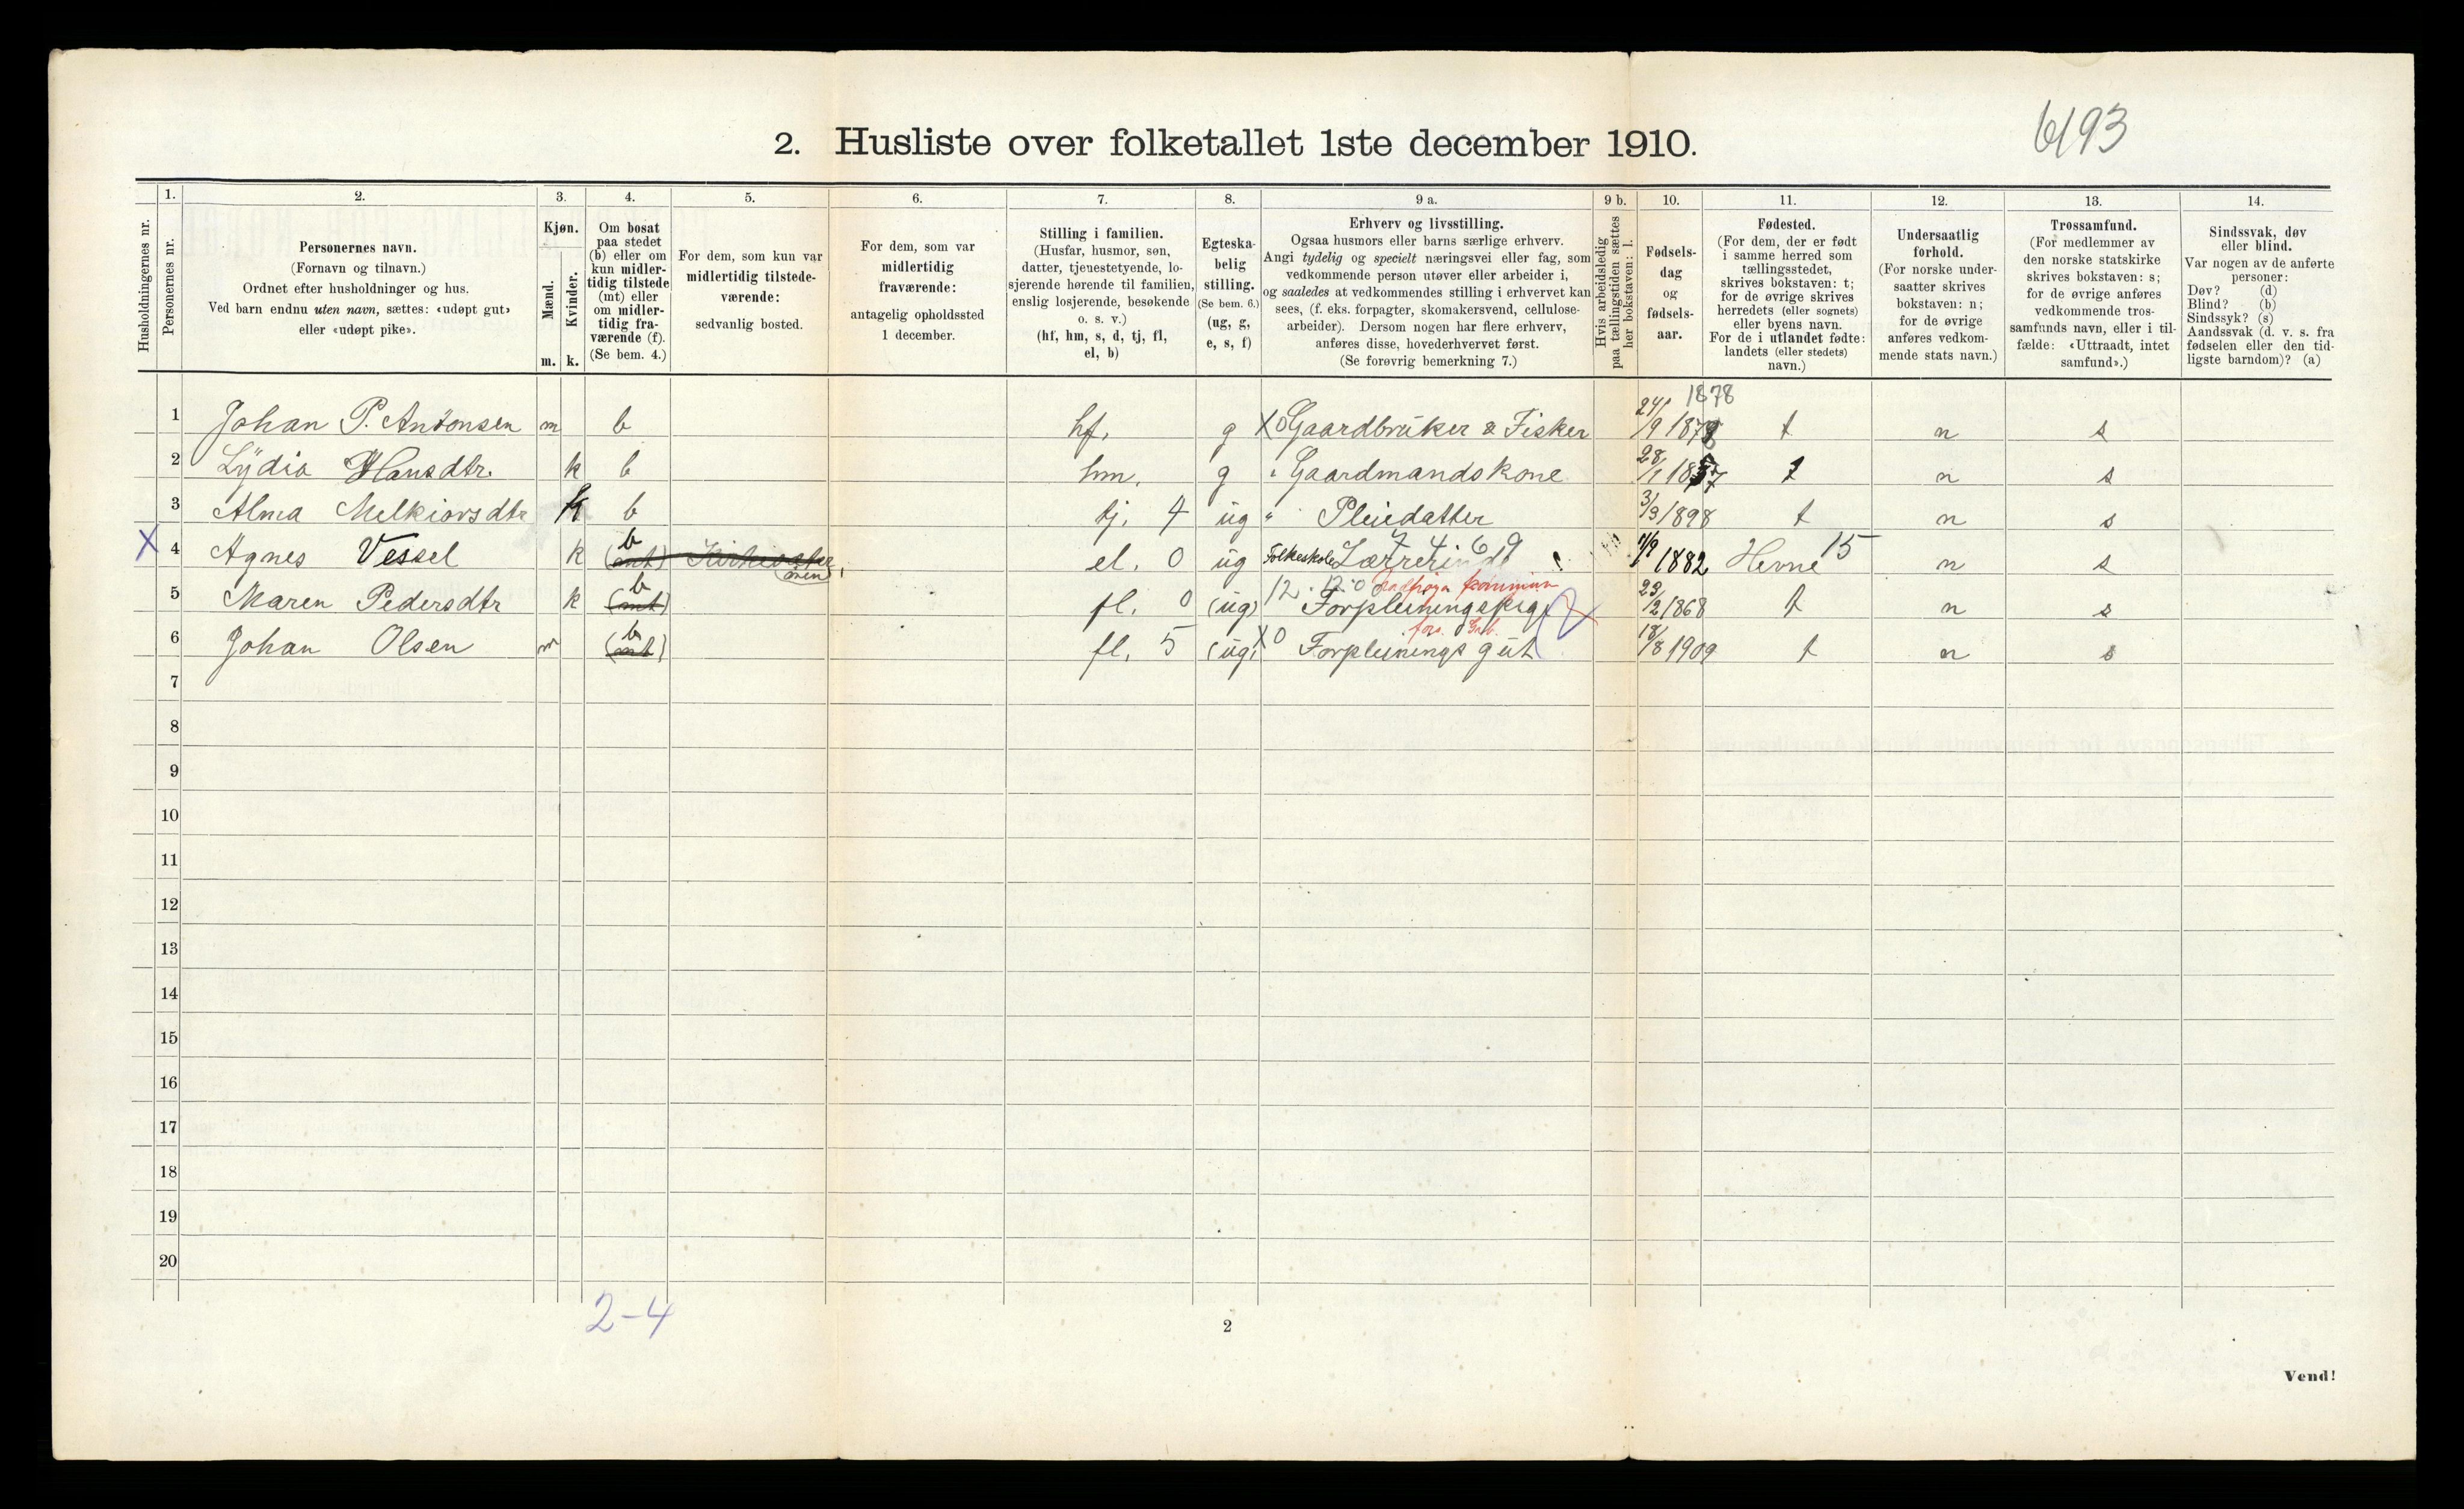 6193
2. Husliste over folketallet 1ste december 1910.
Husholdningernes nr.
1.
Personernes nr.
2.
Personernes navn.
(Fornavn og tilnavn.)
Ordnet efter husholdninger og hus.
Ved barn endnu uten navn, sættes: «udøpt gut»
eller «udøpt pike».
3.
Kjøn.
Mænd.
Kvinder.
m.
k.
4.
Om bosat
paa stedet
(b) eller om
kun midler-
tidig tilstede
(mt) eller
om midler-
tidig fra-
værende (f).
(Se bem. 4.)
5.
For dem, som kun var
midlertidig tilstede-
værende:
sedvanlig bosted.
6.
For dem, som var
midlertidig
fraværende:
antagelig opholdssted
1 december.
7.
Stilling i familien.
(Husfar, husmor, søn,
datter, tjenestetyende, lo-
sjerende hørende til familien,
enslig losjerende, besøkende
o. s. v.)
(hf, hm, s, d, tj, fl,
el, b)
8.
Egteska-
belig
stilling.
(Se bem. 6.)
(ug, g,
e, s, f)
9 a.
Erhverv og livsstilling.
Ogsaa husmors eller barns særlige erhverv.
Angi tydelig og specielt næringsvei eller fag, som
vedkommende person utøver eller arbeider i,
og saaledes at vedkommendes stilling i erhvervet kan
sees, (f. eks. forpagter, skomakersvend, cellulose-
arbeider). Dersom nogen har flere erhverv,
anføres disse, hovederhvervet først.
(Se forøvrig bemerkning 7.)
9 b.
Hvis arbeidsledig
paa tællingstiden sættes
her bokstaven: l.
10.
Fødsels-
dag
og
fødsels-
aar.
11.
Fødested.
(For dem, der er født
i samme herred som
tællingsstedet,
skrives bokstaven: t;
for de øvrige skrives
herredets (eller sognets)
eller byens navn.
For de i utlandet fødte:
landets (eller stedets)
navn.)
12.
Undersaatlig
forhold.
(For norske under-
saatter skrives
bokstaven: n;
for de øvrige
anføres vedkom-
mende stats navn.)
13.
Trossamfund.
(For medlemmer av
den norske statskirke
skrives bokstaven: s;
for de øvrige anføres
vedkommende tros-
samfunds navn, eller i til-
fælde: «Uttraadt, intet
samfund».)
14.
Sindssvak, døv
eller blind.
Var nogen av de anførte
personer:
Døv? (d)
Blind? (b)
Sindssyk? (s)
Aandssvak (d. v. s. fra
fødselen eller den tid-
ligste barndom)? (a)
1878
1 Johan P. Antonsen m b hf. g X0 Gaardbruker & Fisker 24/9 1878 t n s
2 Lydia Hansdtr. k b hm. g " Gaardmandskone 28/1 t n s
3 Alma Melkiorsdtr k b tj. 4 ug " Pleiedatter 3/3 1898 t n s
X 4 Agnes Vessel k b (mt) el. 0 ug Folkeskole Lærrerind 1882 Hevne 15 n s
5 Maren Pedersdtr k b (mt) fl. 0 (ug) 12.12.0 Forpleiningspige 23/2 1868 t n s
6 Johan Olsen m b (mt) fl. 5 (ug) X0 Forpleinings gut 18/8 1909 t n s
7
8
9
10
11
12
13
14
15
16
17
18
19
20
2-4
2
Vend!